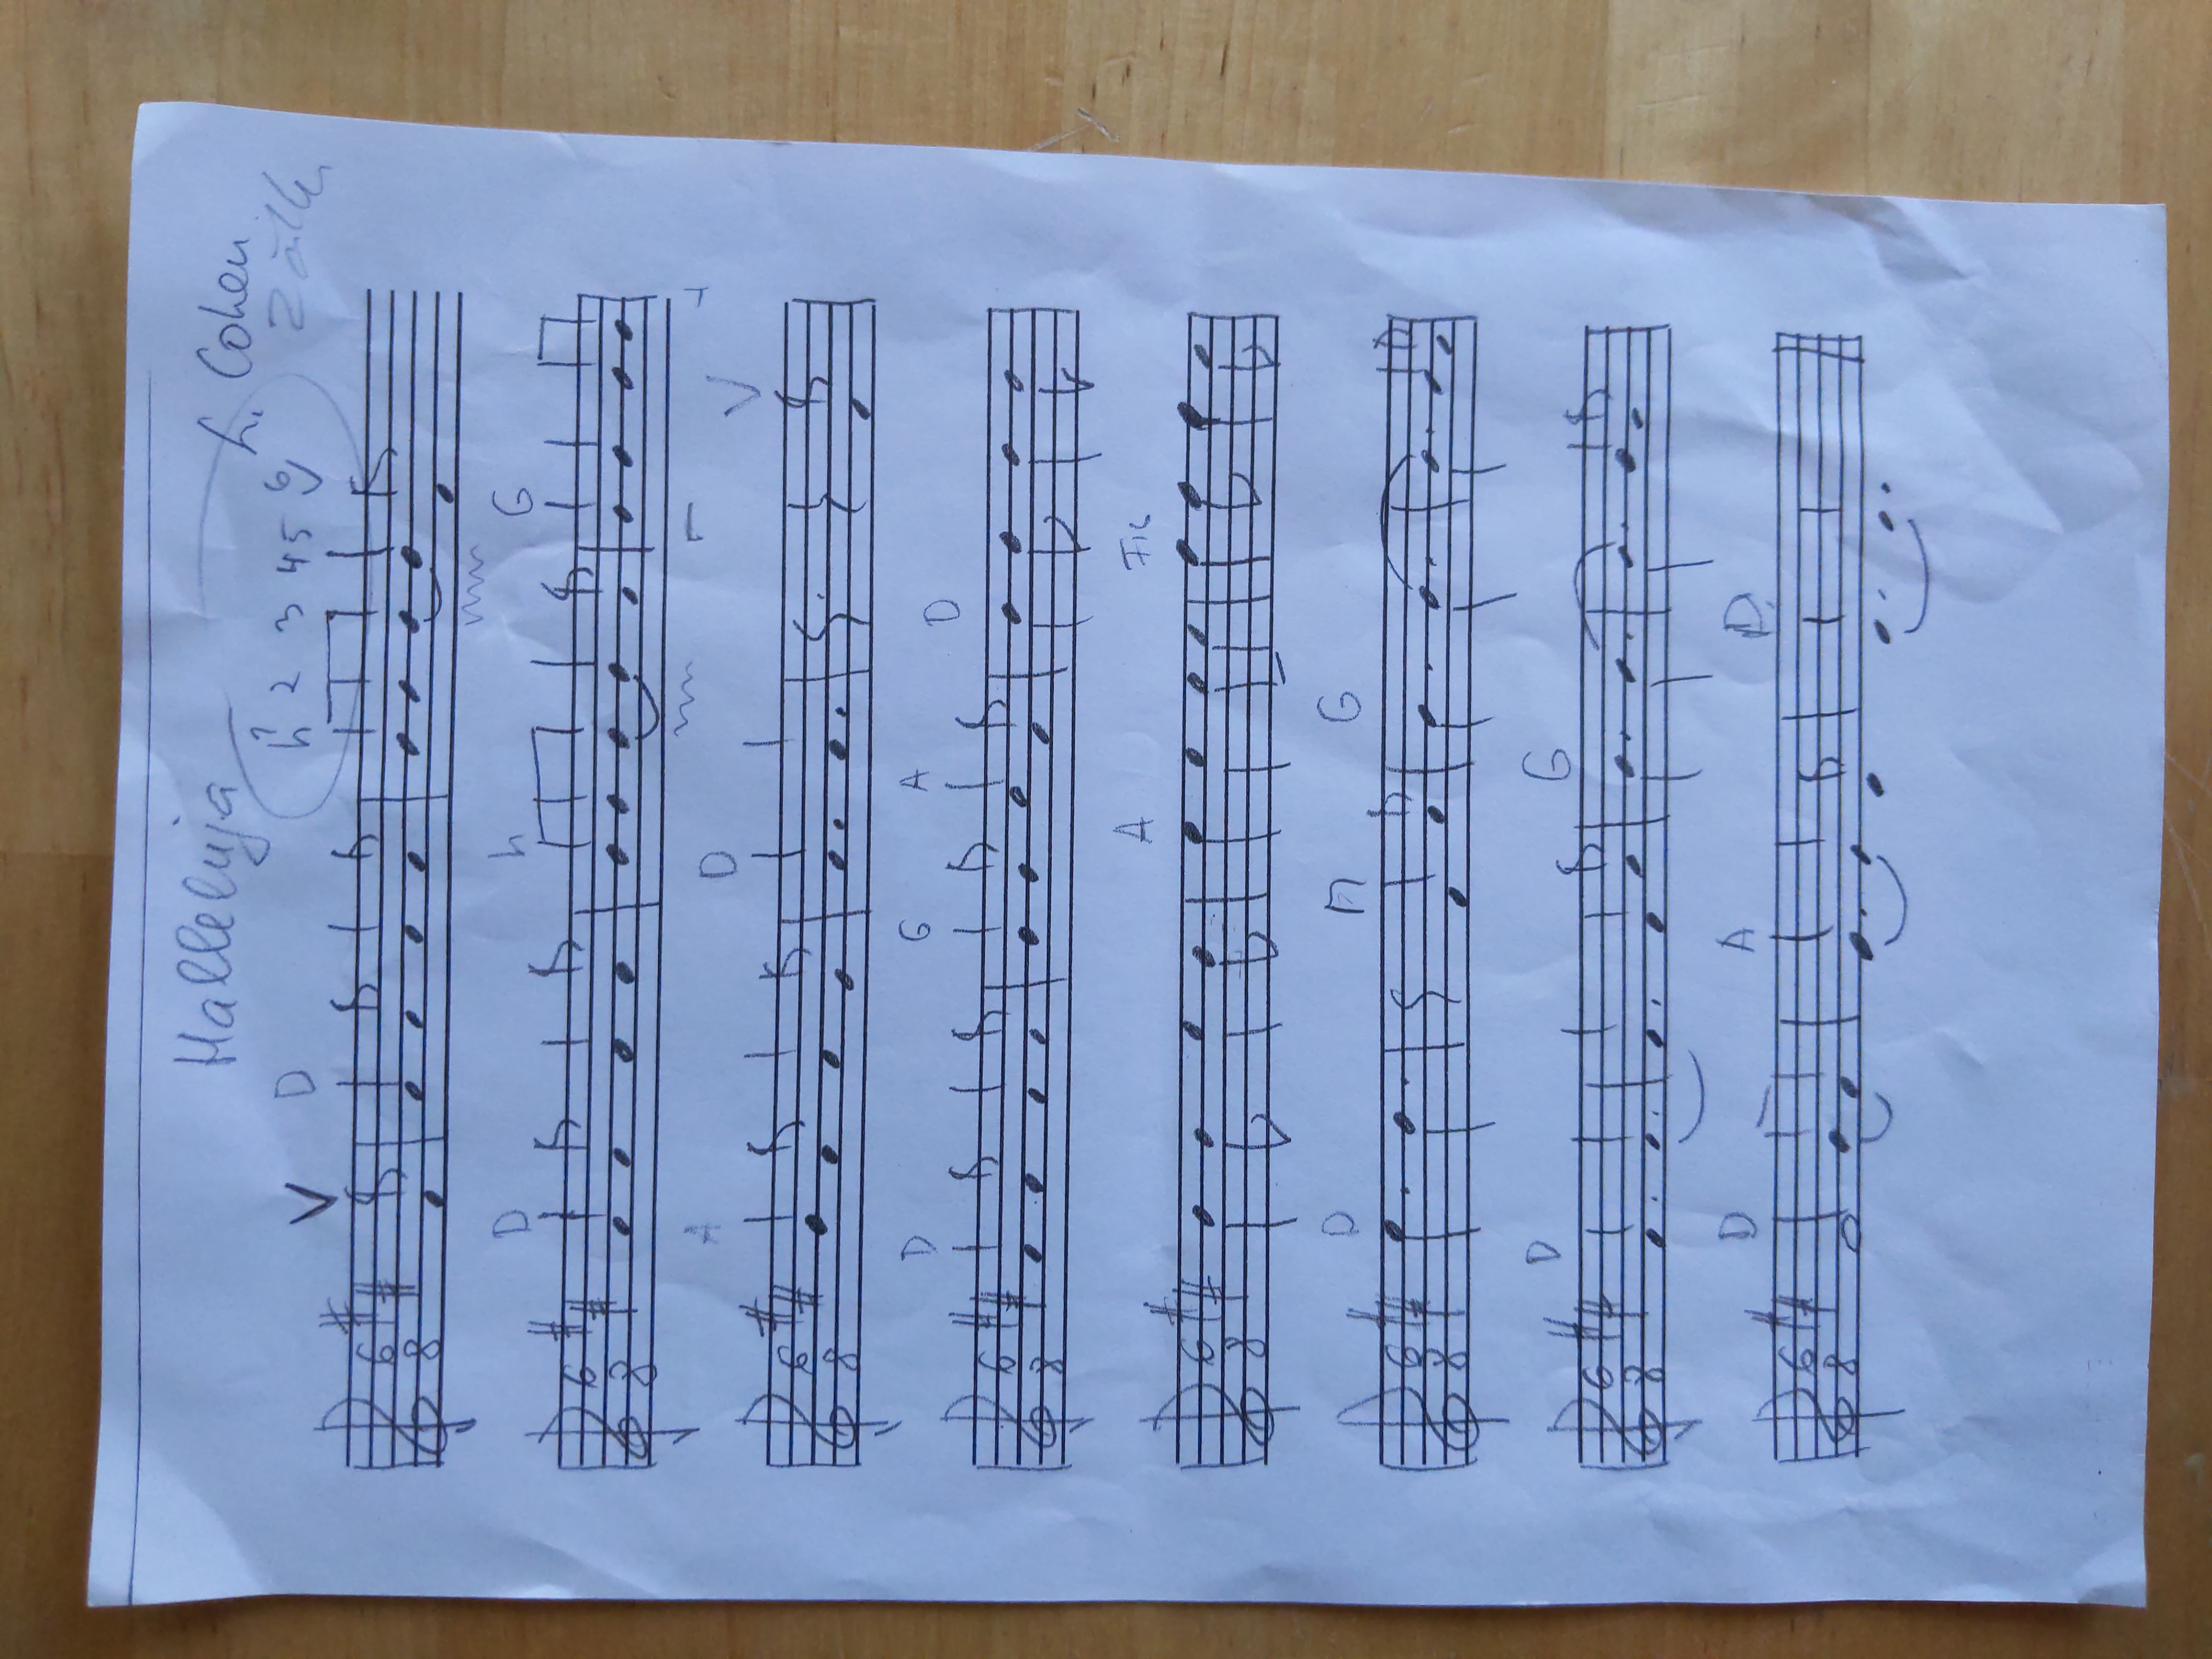 Halleluja
L. Cohen
zähle
V D h 1 2 3 4 5 6
6 8
D h G
6 8
A D V
6 8
D G A D
6 8
A Fis
6 8
D G
6 8
D G
6 8
D A D
6 8